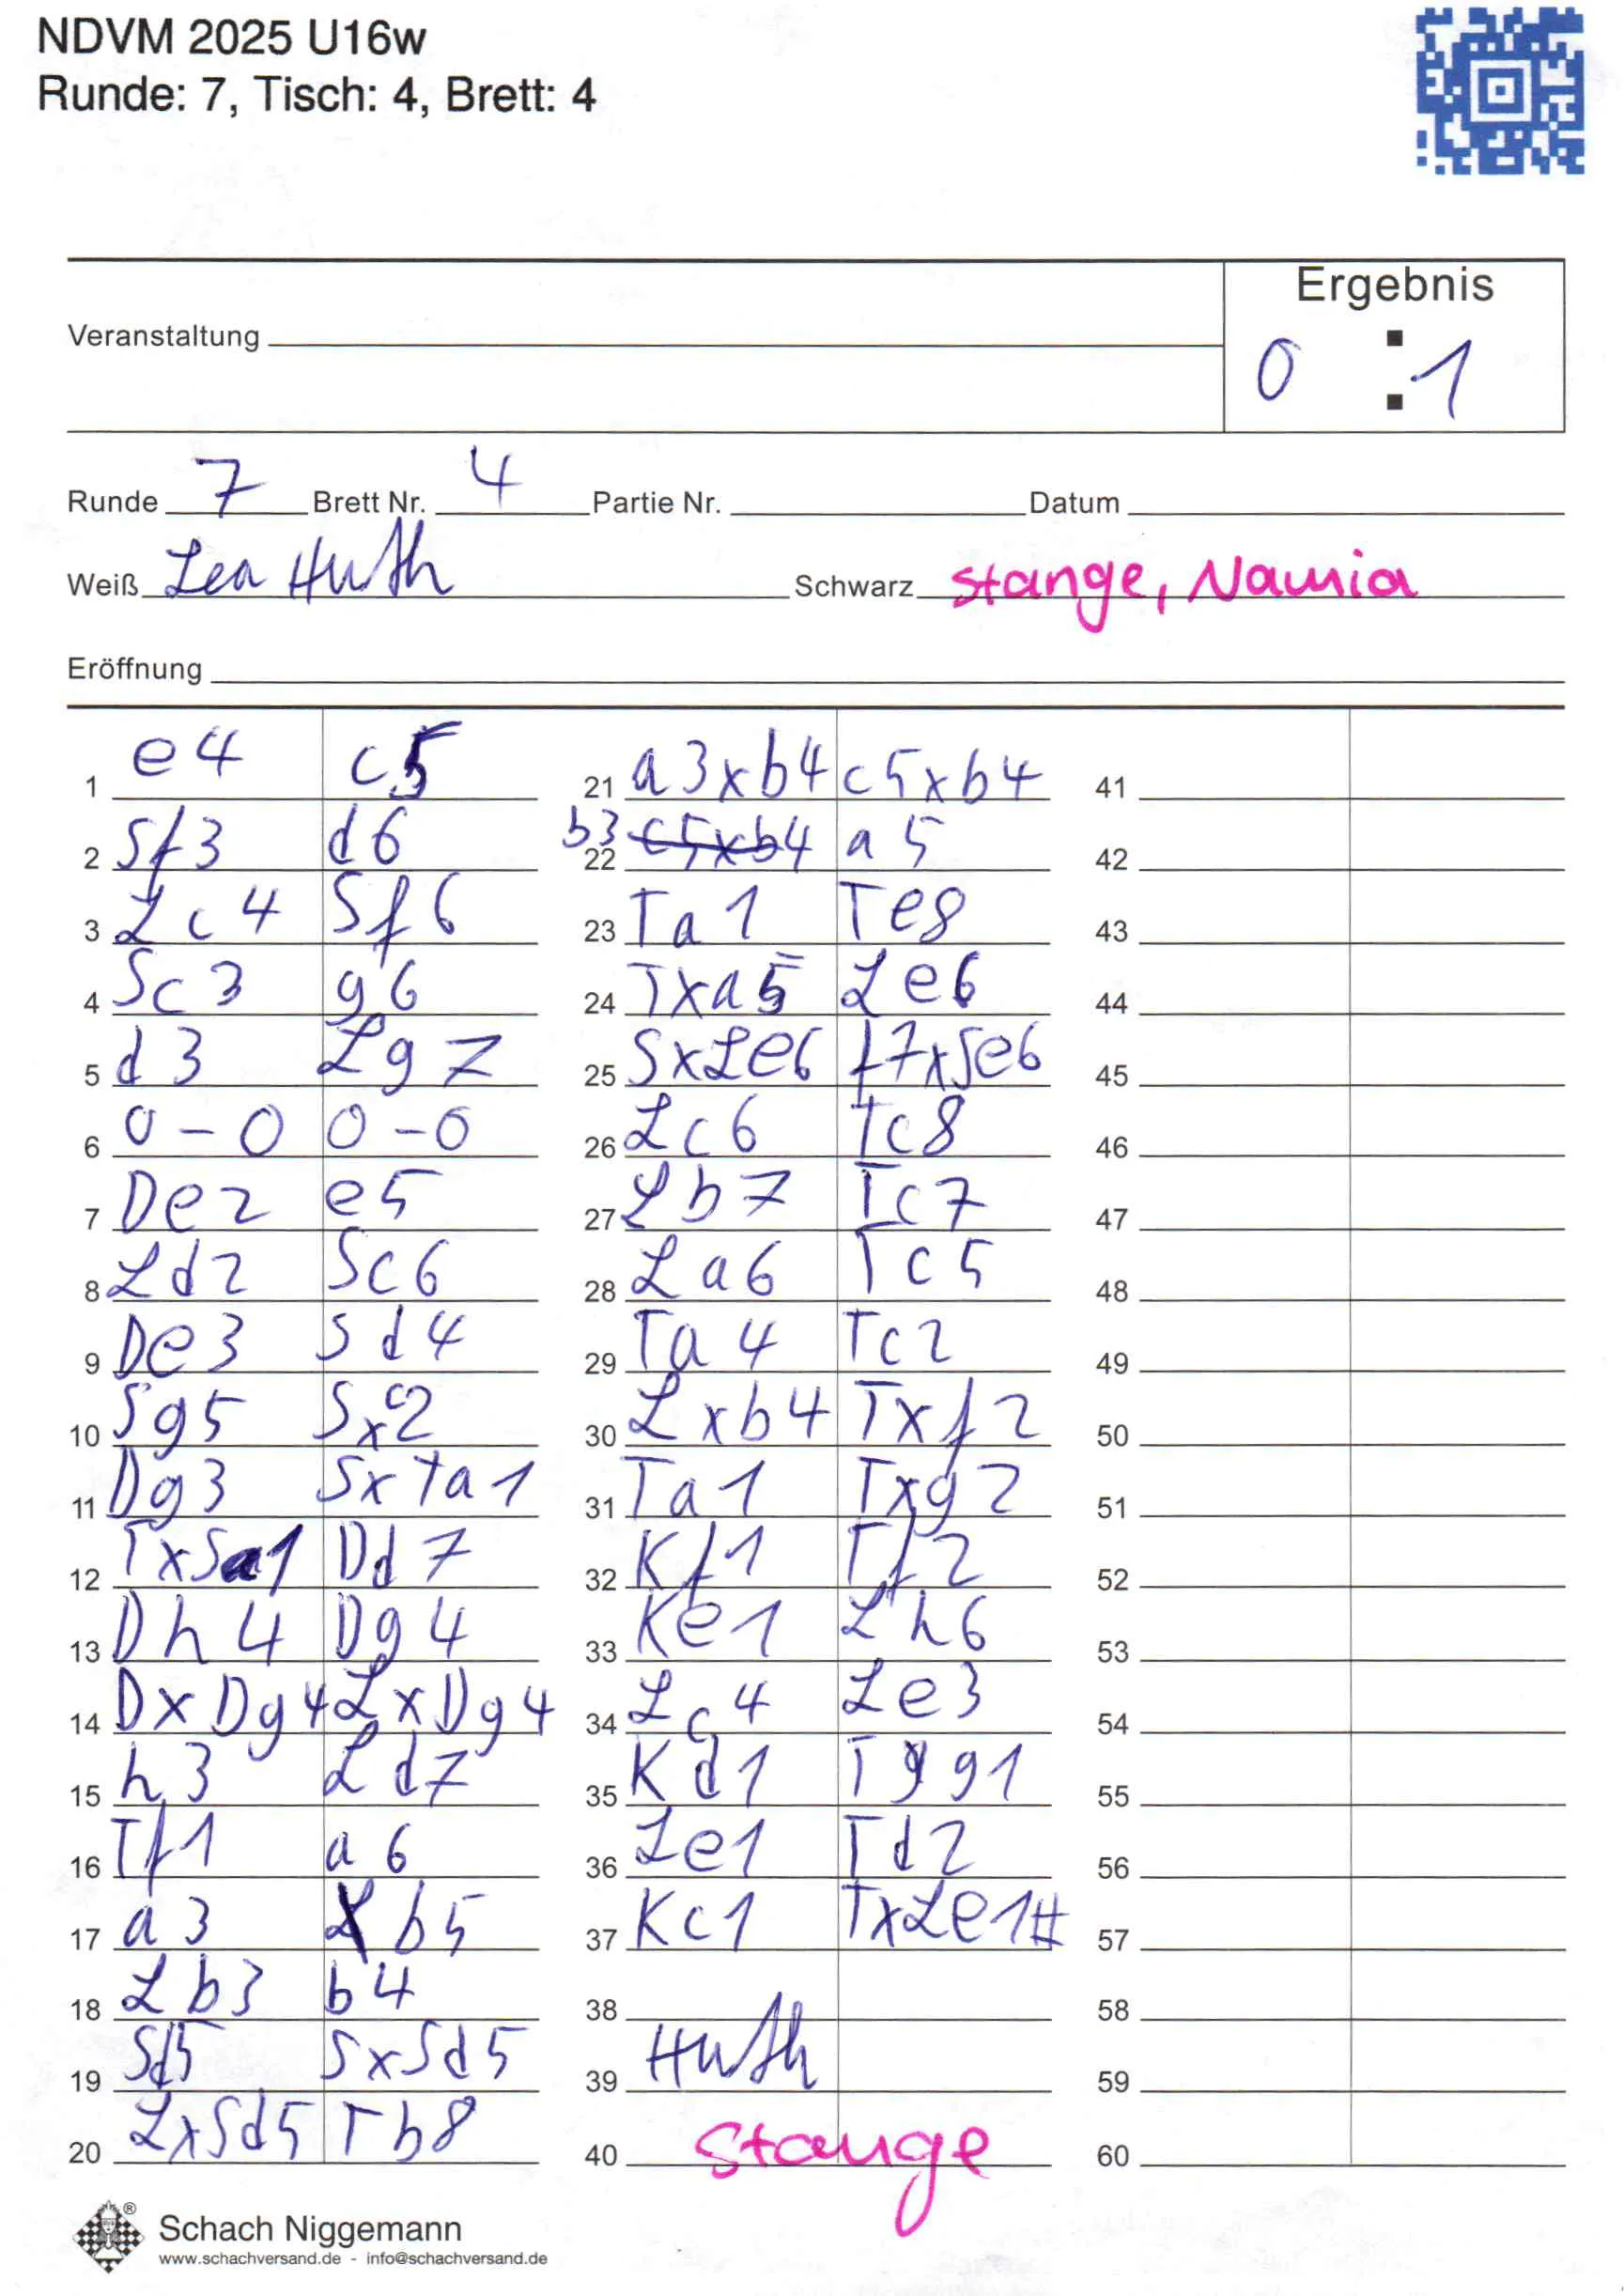 NDVM 2025 U16w
Runde: 7, Tisch: 4, Brett: 4
Ergebnis
Veranstaltung
0 : 1
Runde 7 Brett Nr. 4 Partie Nr. Datum
Weiß Lea Huth Schwarz Stange, Namia
Eröffnung
1 e4 c5
2 Sf3 d6
3 Lc4 Sf6
4 Sc3 g6
5 d3 Lg7
6 0-0 0-0
7 De2 e5
8 Ld2 Sc6
9 De3 Sd4
10 Sg5 Sxc2
11 Dg3 SxTa1
12 TxSa1 Dd7
13 Dh4 Dg4
14 DxDg4 LxDg4
15 h3 Ld7
16 Tf1 a6
17 a3 b5
18 Lb3 b4
19 Sd5 SxSd5
20 LxSd5 Tb8
21 a3xb4 c5xb4
22 b3 c5xb4 a5
23 Ta1 Te8
24 Txa5 Le6
25 SxLe6 f7xSe6
26 Lc6 Tc8
27 Lb7 Tc7
28 La6 Tc5
29 Ta4 Tc2
30 Lxb4 Txf2
31 Ta1 Txg2
32 Kf1 Tf2
33 Ke1 Lh6
34 Lc4 Le3
35 Kd1 Tg1
36 Le1 Td2
37 Kc1 TxLe1#
38
39 Huth
40 Stange
41
42
43
44
45
46
47
48
49
50
51
52
53
54
55
56
57
58
59
60
® Schach Niggemann
www.schachversand.de - info@schachversand.de